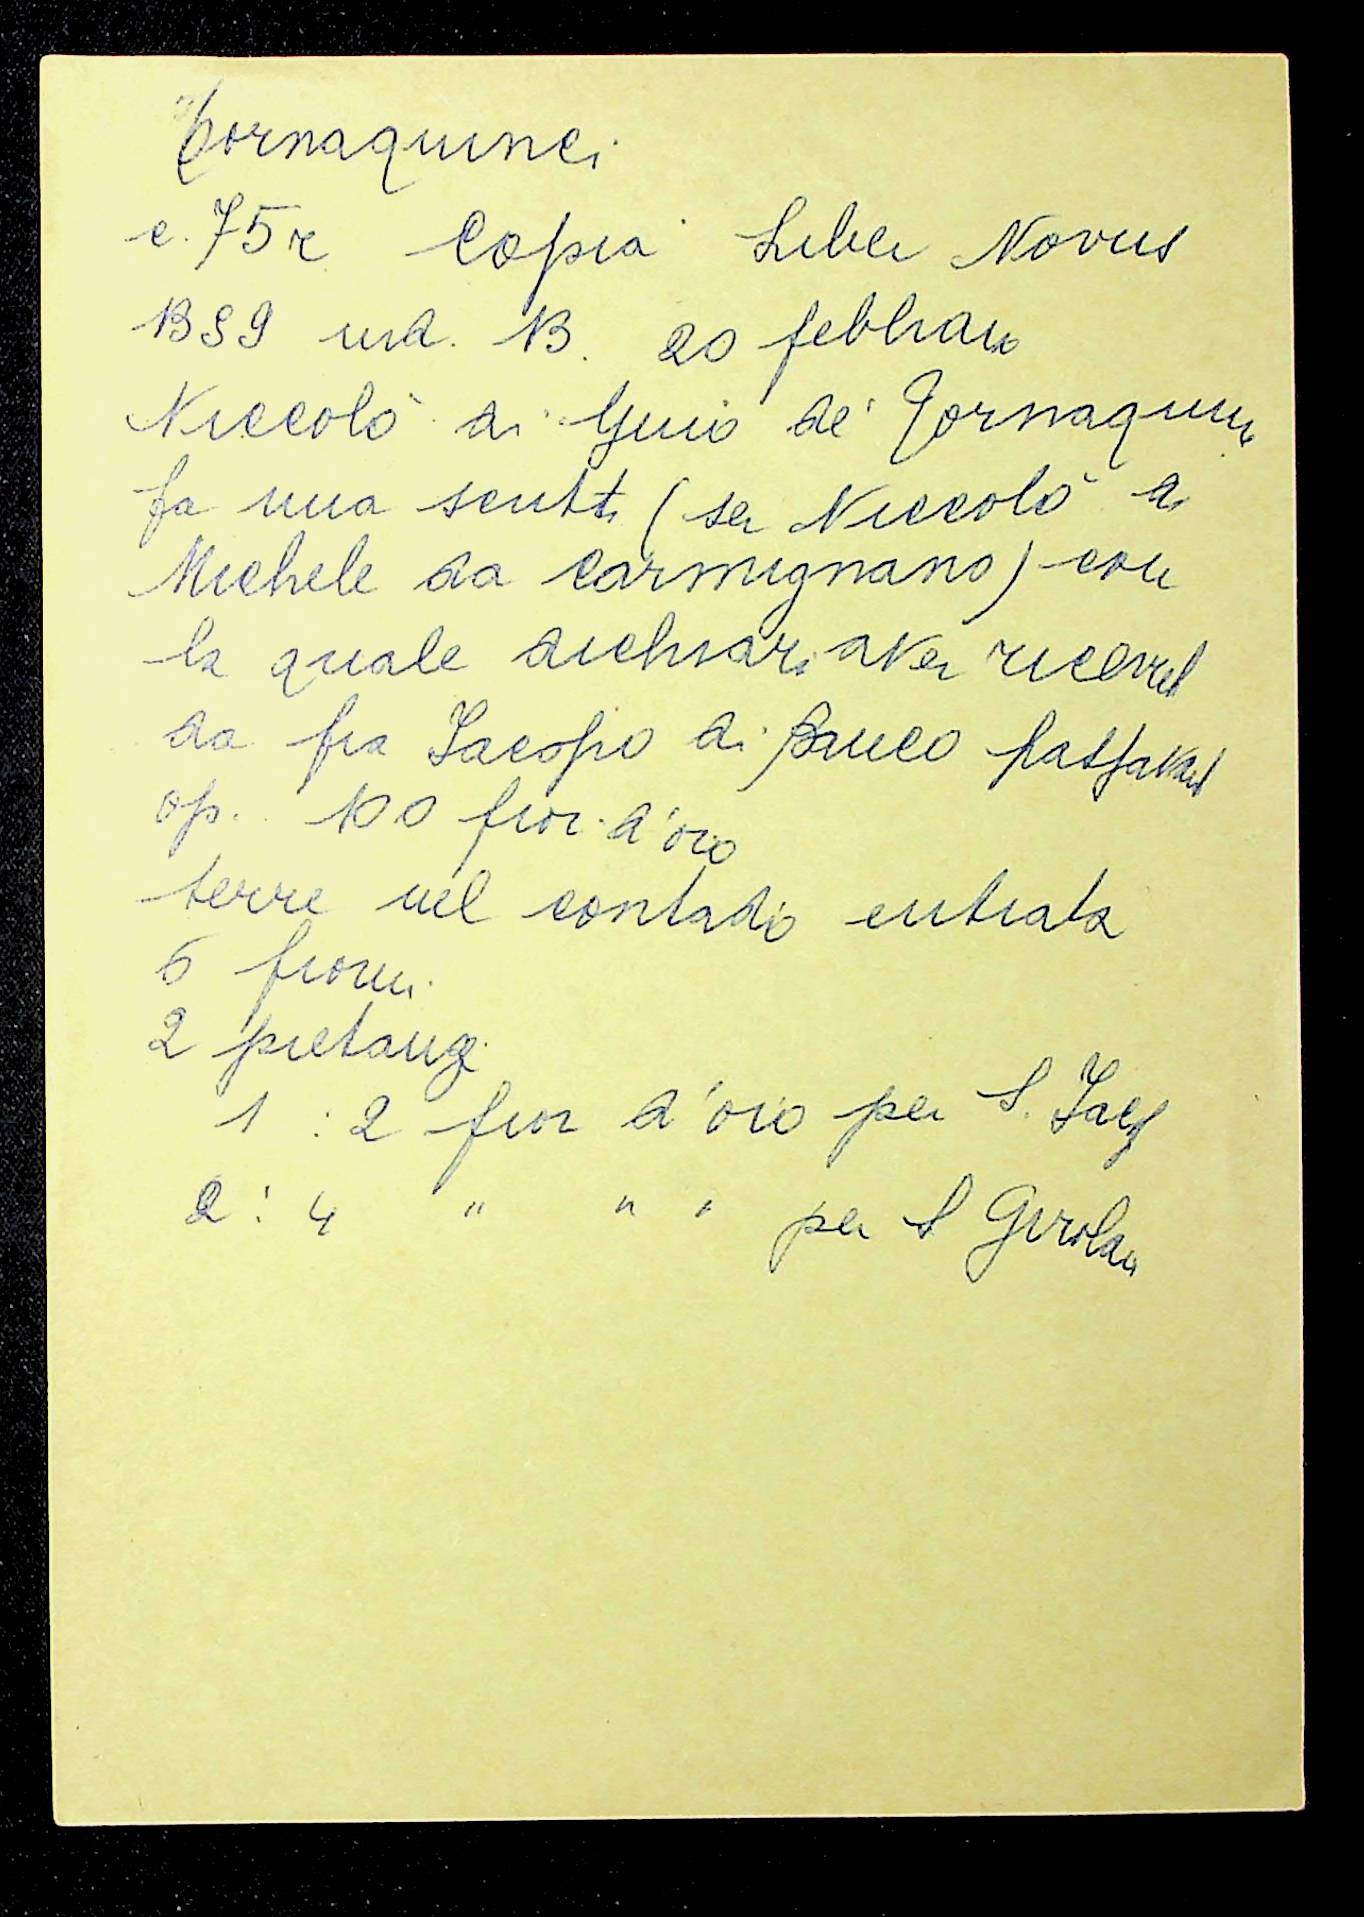 Tornaquinci
c. 75r Copia Liber Novus
1389 ind. 13. 20 febbraio
Niccolò di Guio de' Tornaquinci
fa una scritt. (ser Niccolò di
Michele da Carmignano) con
la quale dichiari aver ricevut
da fra Jacopo di
op. 100 fior. d'oro
terre nel contado entrata
6 fiorini.
2 pietanz.
1 : 2 fior d'oro per S. Jacop
2 : 4 " " " per S Girolam